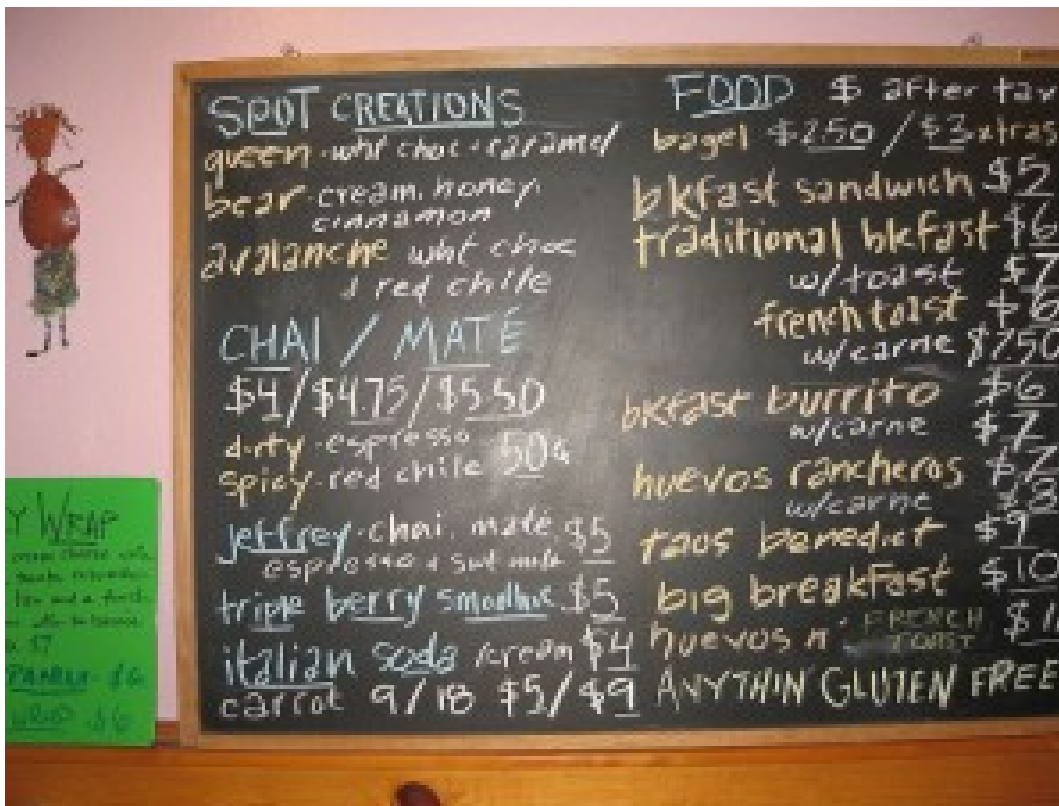 SPOT CREATIONS
queen - wht choc + caramel
bear - cream, honey,
cinnamon
avalanche wht choc
& red chile
CHAI / MATÉ
$4/$4.75/$5.50
dirty - espresso
spicy - red chile 50¢
jeffrey - chai, maté, $5
espresso &
triple berry smoothie $5
italian soda /cream $4
carrot 9/18 $5/$9
FOOD $ after tax
bagel $2.50 / $3 xtras
bkfast sandwich $5
traditional bkfast $6
w/toast $7
french toast $6
w/carne $7.50
bkfast burrito $6
w/carne $7
huevos rancheros $7
w/carne $8
taos benedict $9
big breakfast $10
huevos n' FRENCH
TOAST
ANYTHIN' GLUTEN FREE
Y WRAP
$7
$6
$6